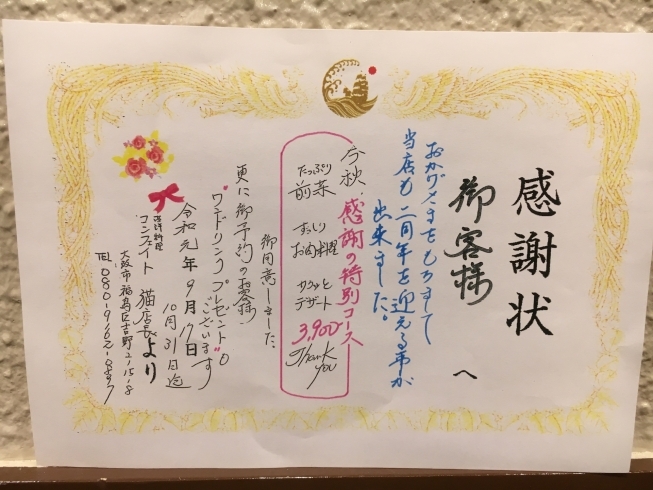 感謝状
御客様へ
おかげさまをもちまして
当店も二周年を迎える事が
出来ました。
今秋、感謝の特別コース
たっぷり
前菜
お肉料理
デザート
3,900
Thank
you
御用意しました
更に御予約のお客様、
"ワンドリンクプレゼント"も
ございます
令和元年9月17日
10月31日迄
西洋料理
コンフェイト 猫店長より
大阪市福島区吉野2-15-8